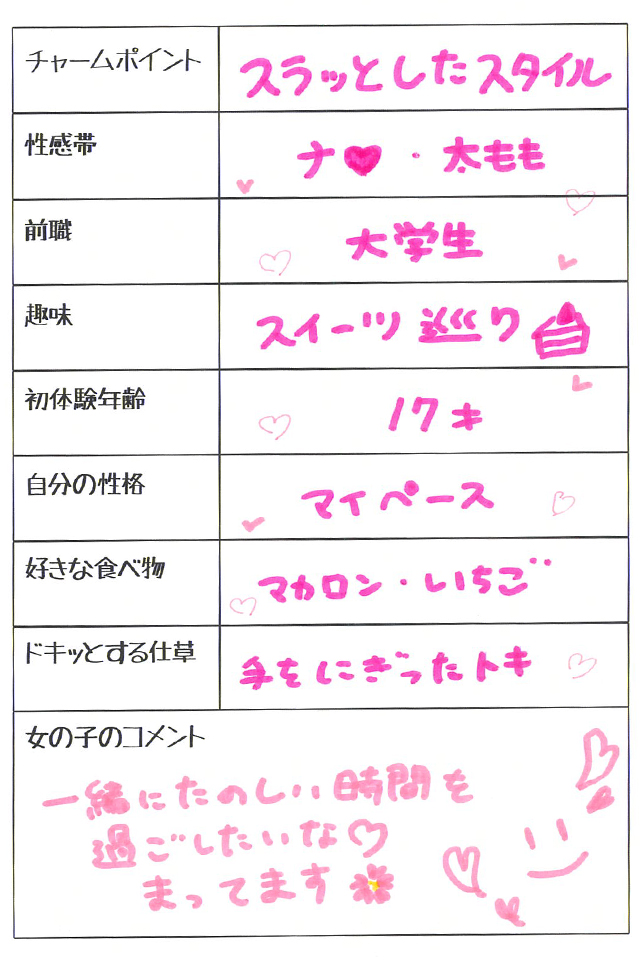 チャームポイント スラッとしたスタイル
性感帯 ナ♥・太もも
前職 大学生
趣味 スイーツ巡り
初体験年齢 17才
自分の性格 マイペース
好きな食べ物 マカロン・いちご
ドキッとする仕草 手をにぎったトキ
女の子のコメント
一緒にたのしい時間を
過ごしたいな♡
まってます